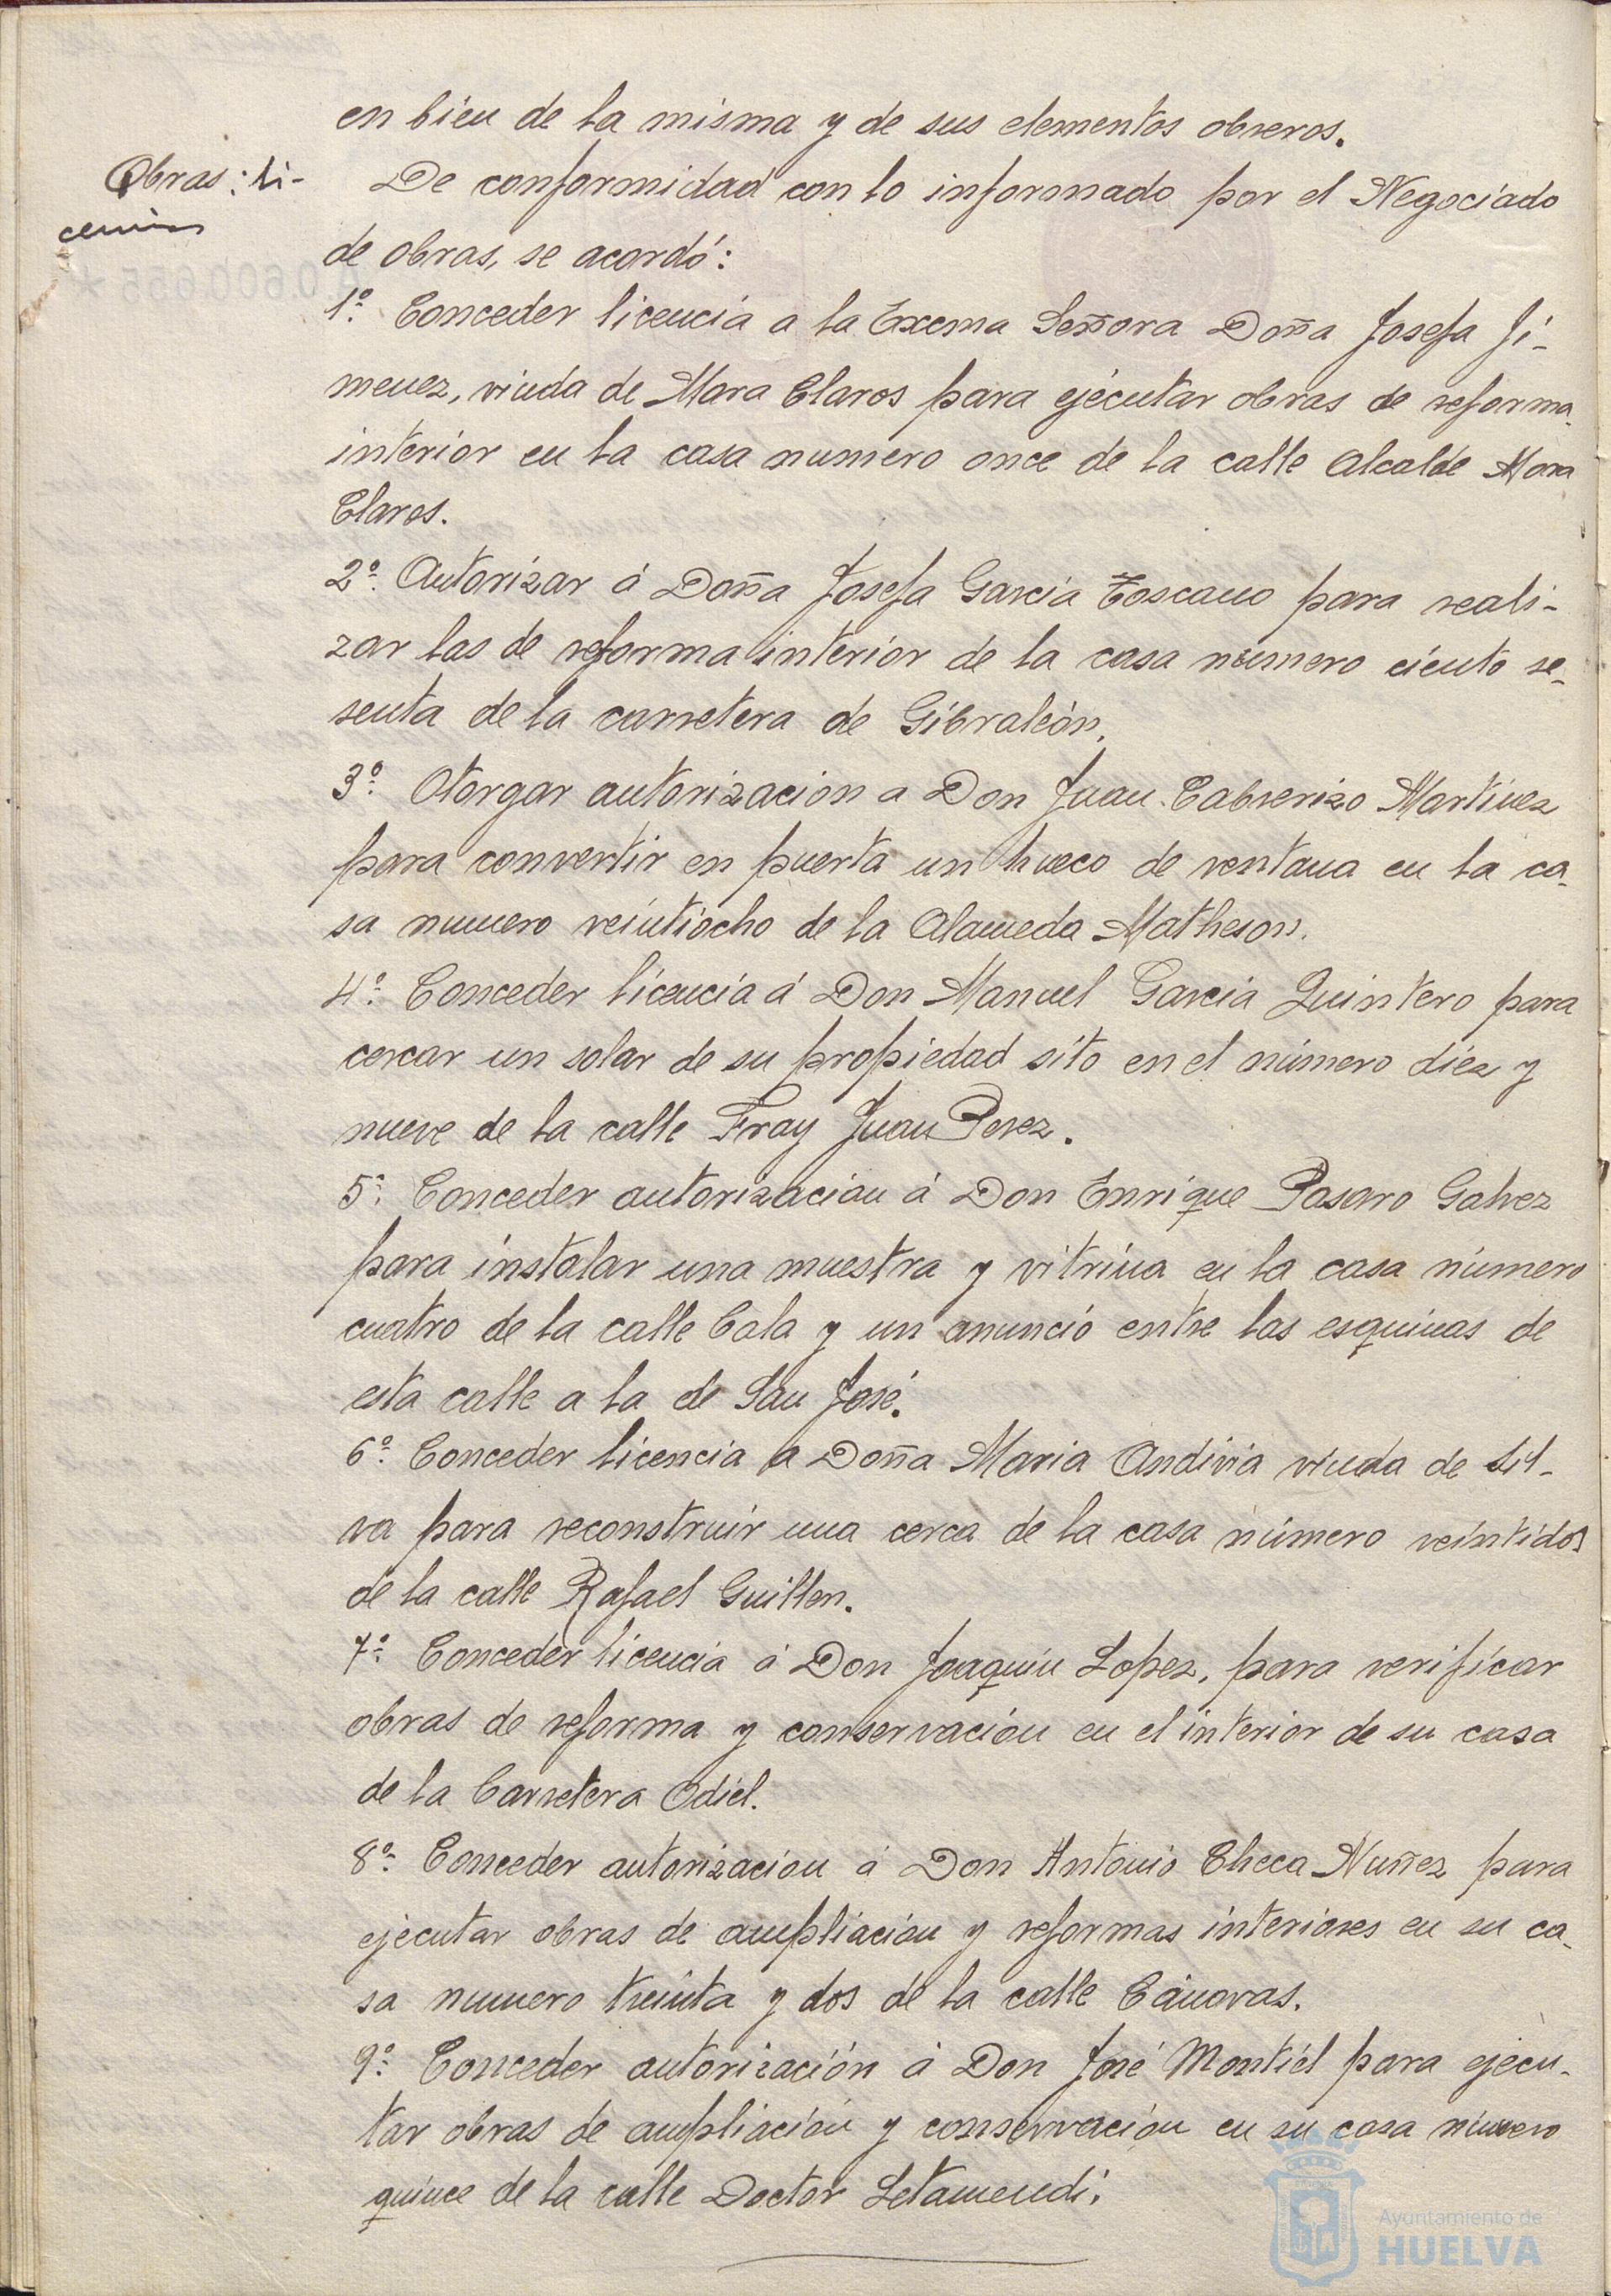 en bien de la misma y de sus elementos obreros.
Obras: li-
cencias
De conformidad con lo informado por el Negociado
de obras, se acordó:
1º. Conceder licencia a la Excma Señora Doña Josefa Ji-
menez, viuda de Mora Claros para ejecutar obras de reforma
interior en la casa numero once de la calle Alcalde Mora
Claros.
2º. Autorizar á Doña Josefa Garcia Toscano para reali-
zar las de reforma interior de la casa número ciento se-
senta de la carretera de Gibraleón.
3º. Otorgar autorizacion a Don Juan Cabrerizo Martinez
para convertir en puerta un hueco de ventana en la ca-
sa numero veintiocho de la Alameda Matheson.
4º. Conceder licencia á Don Manuel Garcia Quintero para
cercar un solar de su propiedad sito en el número diez y
nueve de la calle Fray Juan Perez.
5º. Conceder autorizacion á Don Enrique Pasaro Galvez
para instalar una muestra y vitrina en la casa número
cuatro de la calle Cala y un anuncio entre las esquinas de
esta calle a la de San José.
6º. Conceder licencia a Doña Maria Andivia viuda de Sil-
va para reconstruir una cerca de la casa número veintidos
de la calle Rafael Guillen.
7º. Conceder licencia á Don Joaquin Lopez, para verificar
obras de reforma y conservación en el interior de su casa
de la Carretera Odiel.
8º. Conceder autorizacion á Don Antonio Checa Nuñez para
ejecutar obras de ampliacion y reformas interiores en su ca-
sa numero treinta y dos de la calle Cánovas.
9º. Conceder autorización á Don José Montiel para ejecu-
tar obras de ampliación y conservacion en su casa número
quince de la calle Doctor Letamendi.
Ayuntamiento de
HUELVA